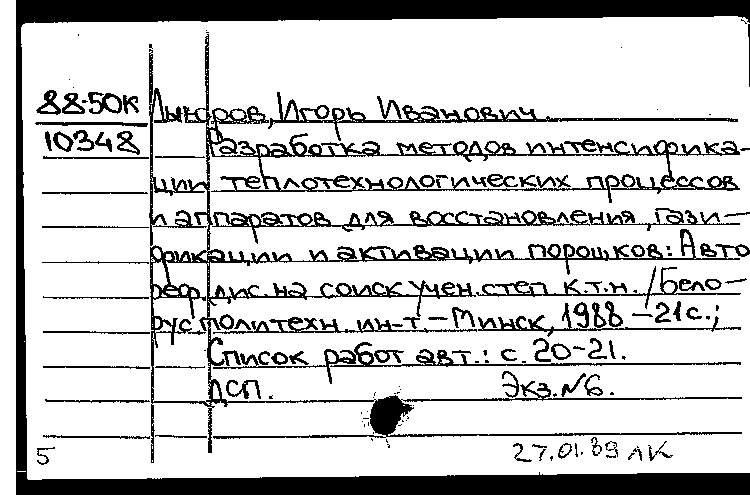 88-50К Лыноров, Игорь Иванович.
10348 Разработка методов интенсифика-
ции теплотехнологических процессов
и аппаратов для восстановления, гази-
фикации и активации порошков: Авто
реф. дис. на соиск учен. степ к.т.н. / Бело-
рус политехн. ин-т. – Минск, 1988 – 21 с.;
Список работ авт.: с. 20-21.
ДСП. Экз. №6.
5 27.01.89 ЛК